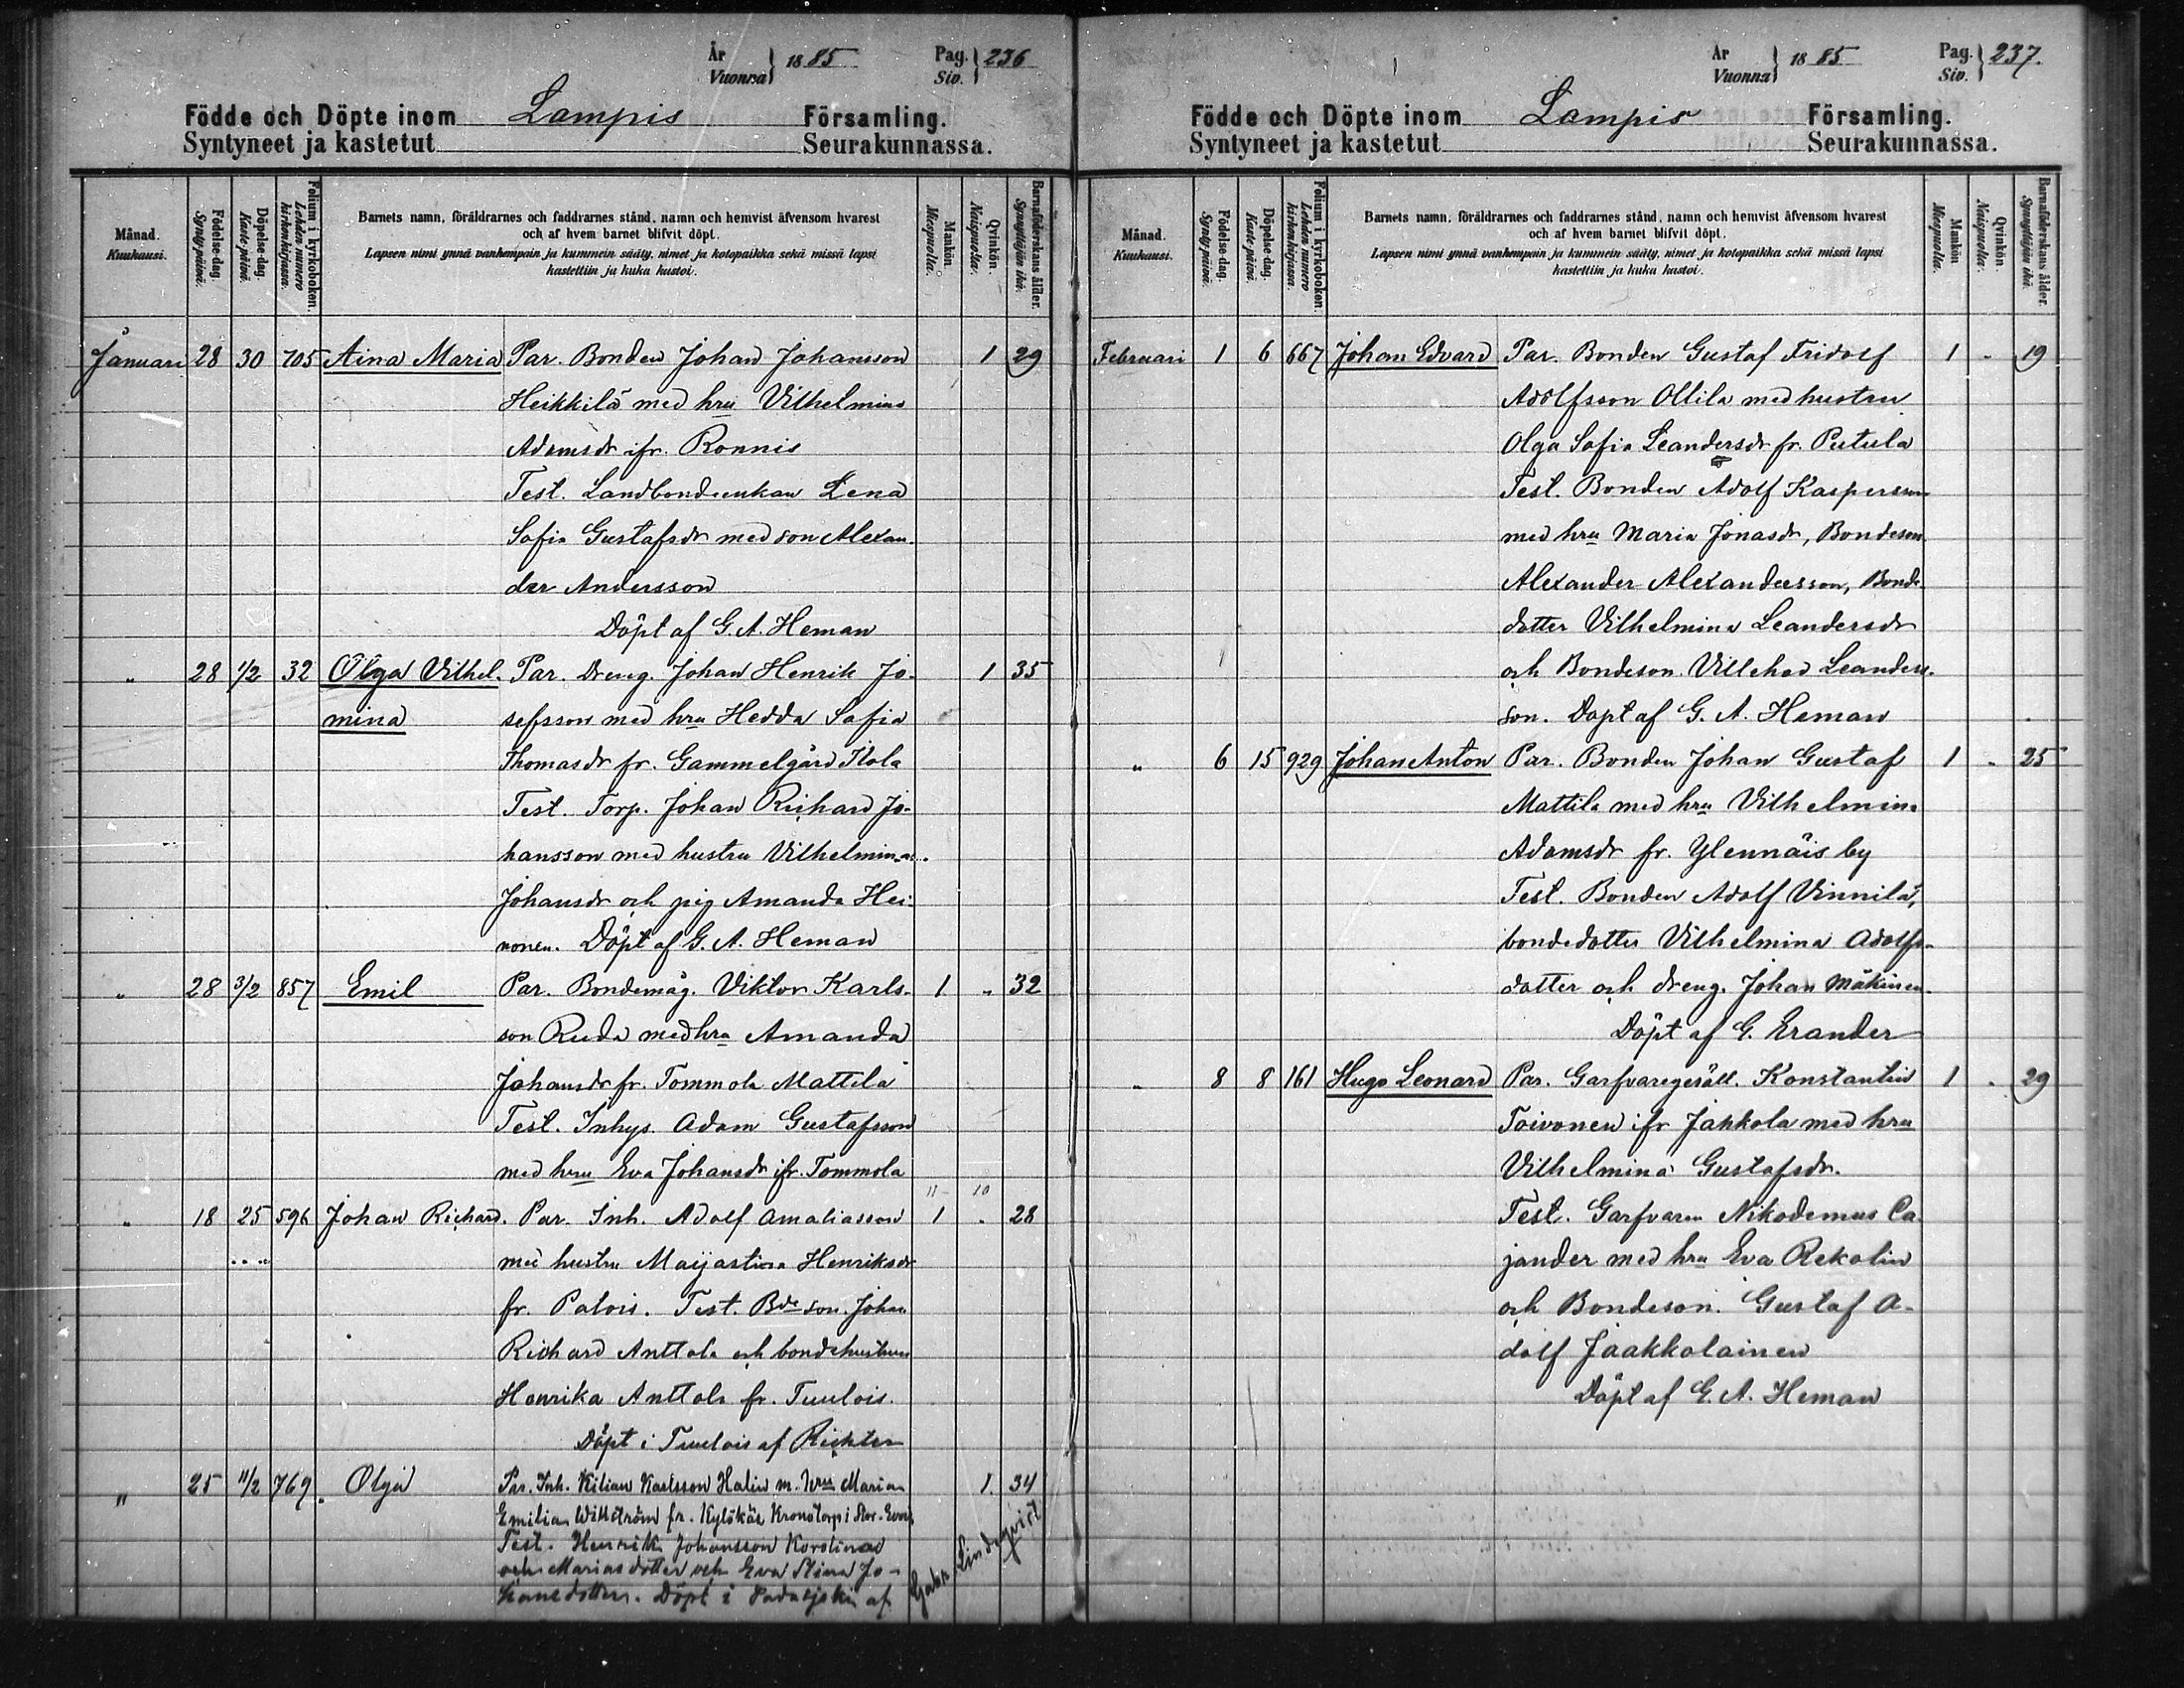 År
Vuonna
1885
Pag.
Siv.
236
Födde och Döpte inom Lampis Församling.
Syntyneet ja kastetut Seurakunnassa.
Månad.
Kuukausi.
Födelse-dag.
Synty-päivä.
Döpelse-dag.
Kaste-päivä.
Folium i kyrkoboken.
Lehden numero
kirkonkirjassa.
Barnets namn, föräldrarnes och faddrarnes stånd, namn och hemvist äfvensom hvarest
och af hvem barnet blifvit döpt.
Lapsen nimi ynnä vanhempain ja kummein sääty, nimet ja kotopaikka sekä missä lapsi
kastettiin ja kuka kastoi.
Mankön.
Miespuolta.
Qvinkön.
Naispuolta.
Barnaföderskans ålder.
Synnyttäjän ikä.
Januari 28 30 705 Aina Maria Par. Bonden Johan Johansson 1 29
Heikkilä med hru Vilhelmina
Adamsdr ifr. Ronnis
Test. Landbondeenkan Lena
Sofia Gustafsdr med son Alexan-
der Andersson
Döpt af G. A. Heman
" 28 1/2 32 Olga Vilhel- Par. Dreng. Johan Henrik Jo- 1 35
mina sefsson med hru Hedda Sofia
Thomasdr fr. Gammelgård Ilola
Test. Torp. Johan Richard Jo-
hansson med hustru Vilhelmina
Johansdr och pig Amanda Hei-
nonen. Döpt af G. A. Heman
" 28 3/2 857 Emil Par. Bondemåg. Viktor Karls- 1 " 32
son Ruda med hru Amanda
Johansdr fr. Tommola Mattila
Test. Inhys. Adam Gustafsson
med hru Eva Johansdr ifr. Tommola
11 10
" 18 25 596 Johan Richard. Par. Inh. Adolf Amaliasson 1 " 28
med hustru Maijastina Henriksdr
fr. Patois. Test. Bde son. Johan
Richard Anttola och bondehustrun
Henrika Anttola fr. Tuulois.
Döpt i Tuulois af Richter
" 25 11/2 769 Olga Par. Inh. Kilian Karlsson Halin m. hru Maria 1 34
Emilia Wikström fr. Kronotorp i
Test. Henrik Johansson Karolina
och Mariasdotter och Eva Stina Jo-
hansdotter. Döpt i Padasjoki af
Gabr. Lindeqvist
År
Vuonna
1885
Pag.
Siv.
237.
Födde och Döpte inom Lampis Församling.
Syntyneet ja kastetut Seurakunnassa.
Månad.
Kuukausi.
Födelse-dag.
Synty-päivä.
Döpelse-dag.
Kaste-päivä.
Folium i kyrkoboken.
Lehden numero
kirkonkirjassa.
Barnets namn, föräldrarnes och faddrarnes stånd, namn och hemvist äfvensom hvarest
och af hvem barnet blifvit döpt.
Lapsen nimi ynnä vanhempain ja kummein sääty, nimet ja kotopaikka sekä missä lapsi
kastettiin ja kuka kastoi.
Mankön.
Miespuolta.
Qvinkön.
Naispuolta.
Barnaföderskans ålder.
Synnyttäjän ikä.
Februari 1 6 667 Johan Edvard Par. Bonden Gustaf Fridolf 1 " 19
Adolfsson Ollila med hustru
Olga Sofia Leandersdr fr. Putula
Test. Bonden Adolf Kaspersson
med hru Maria Jonasdr, Bondeson
Alexander Alexandersson, Bonde-
dotter Vilhelmina Leandersdr
och Bondeson. Villehad Leanders-
son. Döpt af G. A. Heman
" 6 15 929 Johan Anton Par. Bonden Johan Gustaf 1 " 25
Mattila med hru Vilhelmina
Adamsdr fr. Ylennäis by
Test. Bonden Adolf Vinnilä,
bondedotter Vilhelmina Adolfs-
dotter och dreng. Johan Mäkinen.
Döpt af G. Erander
" 8 8 161 Hugo Leonard Par. Garfvaregesäll. Konstantin 1 " 29
Toivonen ifr Jahkola med hru
Vilhelmina Gustafsdr.
Test. Garfvaren Nikodemus Ca-
jander med hru Eva Rekolin
och Bondeson. Gustaf A-
dolf Jaakkolainen
Döpt af G. A. Heman